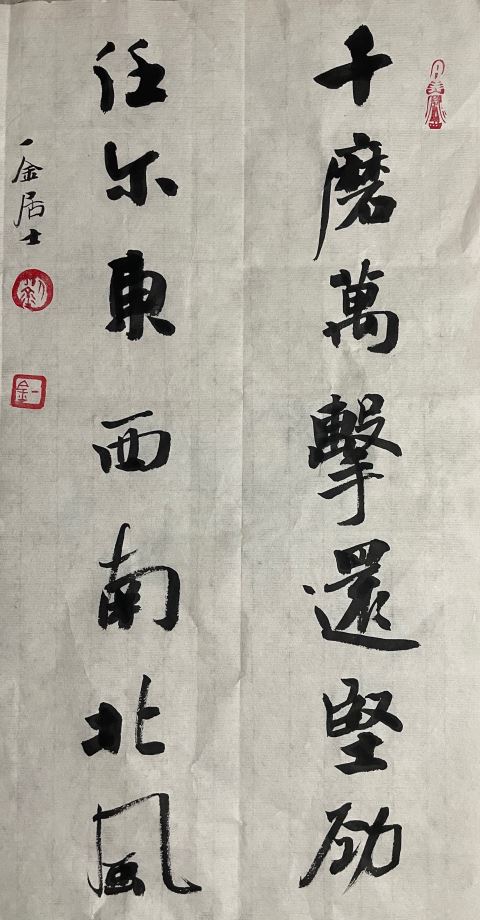 千磨萬擊還堅勁
任尔東西南北風
一金居士
一金